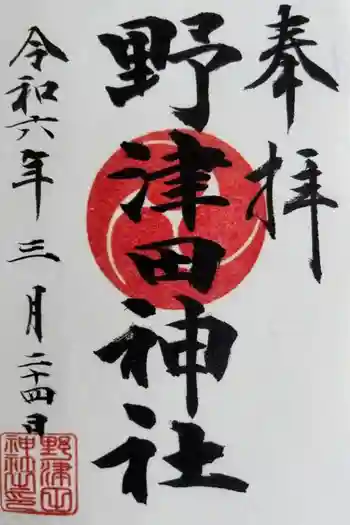 奉拝
野津田神社
令和六年三月二十四日
野津田神社之印